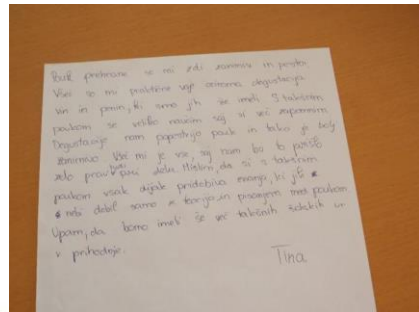 Pouk prehrane se mi zdi zanimiv in pester.
Všeč so mi praktične vaje oziroma degustacija
vin in penin, ki smo jih že imeli. S takšnim
poukom se veliko naučim saj si več zapomnim.
Degustacije nam popestrijo pouk in tako je bolj
zanimivo. Všeč mi je vse, saj nam bo to prišlo
zelo prav pri delu. Mislim, da si s takšnim
poukom vsak dijak pridobiva znanja, ki jih
nebi dobil samo s teorijo in pisanjem med poukom.
Upam, da bomo imeli še več takšnih šolskih ur
v prihodnje.
Tina